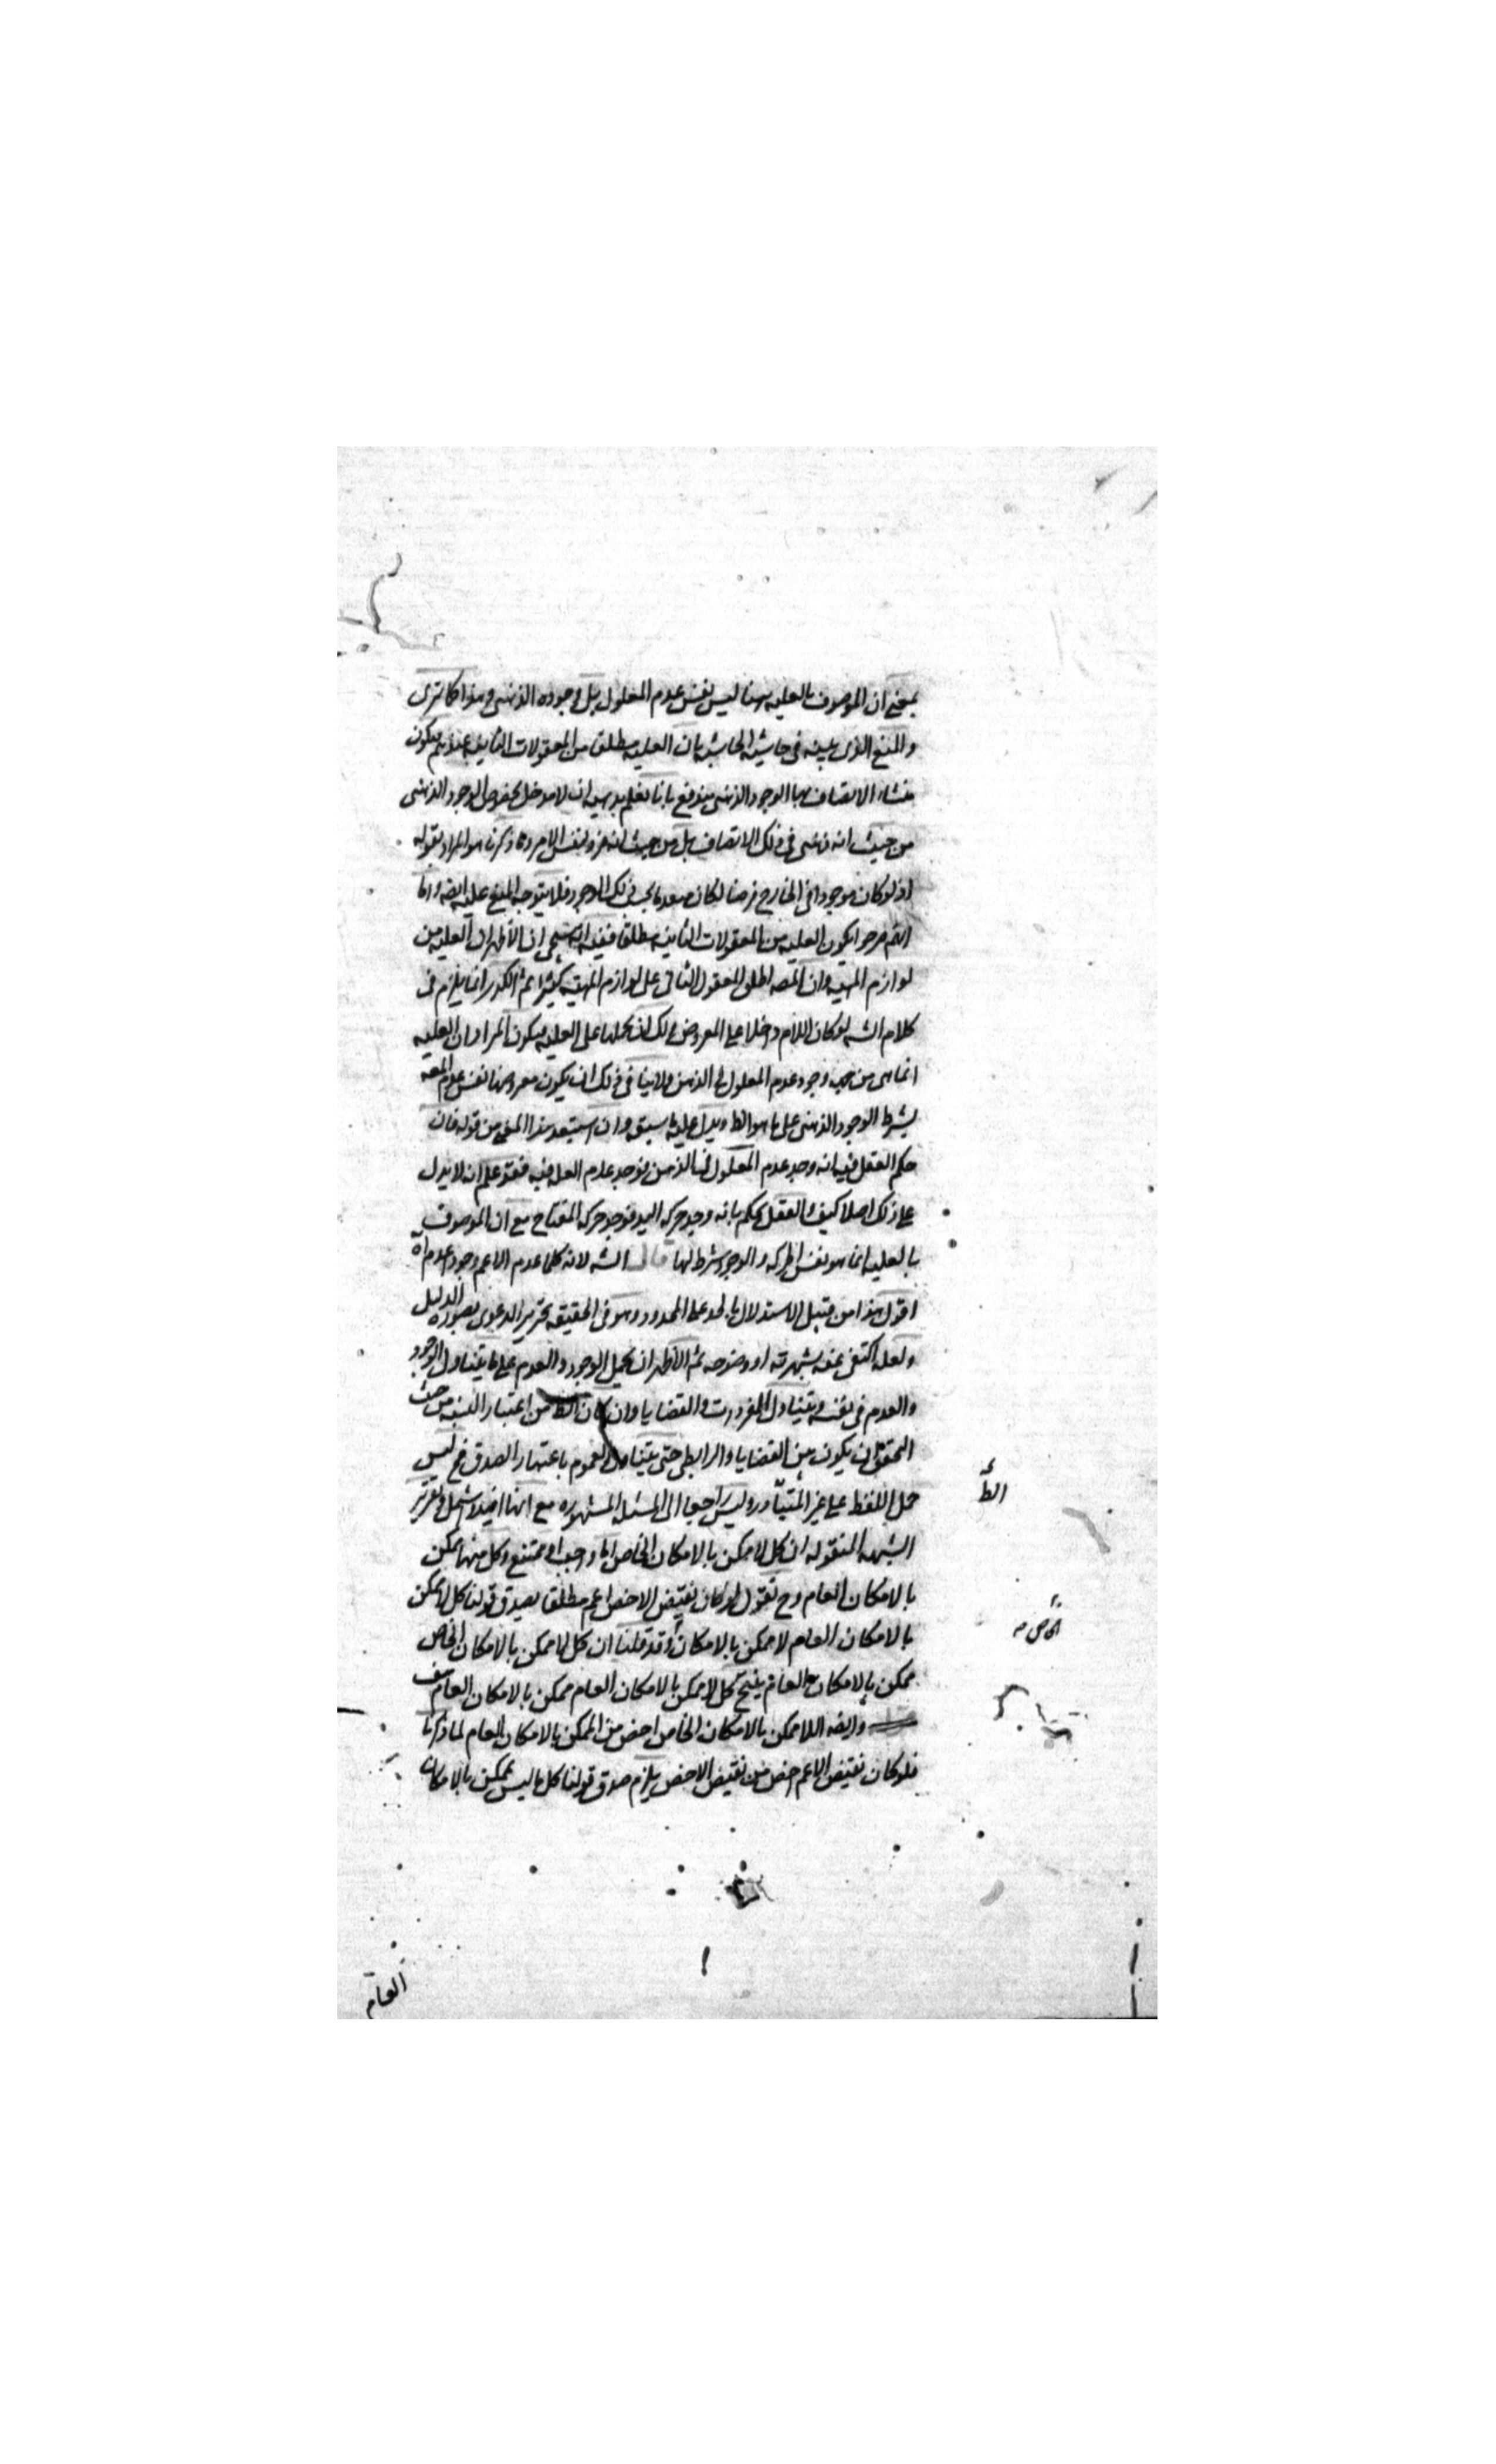 بمعنى ان الموصوف بالعليه هنا ليس نفس عدم المعلول بل وجوده الذهنى وهذا كما ترى
والمنع الذى بينه فى حاشية الحاشيه بان العليه مطلقا من المعقولات الثانيه عندهم فيكون
منشاء الاتصاف بها الوجود الذهنى يندفع بانا نعلم بديهه ان لا مدخل لخصوص الوجود الذهنى
من حيث انه ذهنى فى ذلك الاتصاف بل من حيث انه نفس الامر وما ذكرنا هو المراد بقوله
اذ لو كان موجودا فى الخارج فرضا لكان بحسب ذلك الوجود فلا يتوجه المنع عليه ايضه واما
انهم صرحوا بكون العليه من المعقولات الثانيه مطلقا ففيه انه سيجى ان الاظهر ان العليه من
لوازم المهيه وان المصه اطلق المعقول الثانى على لوازم المهيه كثيرا ثم الكدر انما يلزم فى
كلام الشه لو كان اللام داخلا على المعروض لك ان تحملها على العليه فيكون المراد ان العليه
انما هى من وجود عدم المعلول فى الذهن ولا ينافى ذلك ان يكون معروضها نفس عدم المعه
بشرط الوجود الذهنى على ما هو الظ ويدل عليه ما سبق وان استبعد هذا المعنى من قوله فان
حكم العقل فيه انه وجد عدم المعلول فى الذهن فوجد عدم العله فيه فقد علم انه لا يدل
على ذلك اصلا كيف والعقل يحكم بانه وجد حركه اليد فوجد حركه المفتاح مع ان الموصوف
بالعليه انما هو نفس الحركه والوجود شرط لها قال الشه لانه كلما عدم الاعم وجود عدم آه
اقول هذا من قبيل الاستدلال بالحد على المحدود وهو فى الحقيقه تحرير الدعوى بصوره الدليل
ولعله اكتفى عنه بشهرته او وضوحه ثم الاظهر ان يحمل الوجود والعدم على ما يتناول الوجود
والعدم فى نفسه ويتناول المفردات والقضايا وان كان الظ من اعتبار النسبه من حيث
التحقق ان يكون بين القضايا والرابطى حتى يتناول العموم باعتبار الصدق فح ليس
حمل اللفظ على غير المتبادر وليس راجعا الى المسئله المشهوره مع انها ايضا اشمل وتقرير
الشبهه المنقوله ان كل لا ممكن بالامكان الخاص اما واجب او ممتنع وكل منهما ممكن
بالامكان العام وح نقول لو كان نقيض الاخص اعم مطلقا يصدق قولنا كل لا ممكن
بالامكان العام لا ممكن بالامكان وقد قلنا ان كل لا ممكن بالامكان الخاص
ممكن بالامكان العام ينتج كل لا ممكن بالامكان العام ممكن بالامكان العام هف
وايضه اللا ممكن بالامكان الخاص اخص من الممكن بالامكان العام لما ذكرنا
فلو كان نقيض الاعم اخص من نقيض الاخص يلزم صدق قولنا كل ما ليس بممكن بالامكان
الظ
الخاص
العام